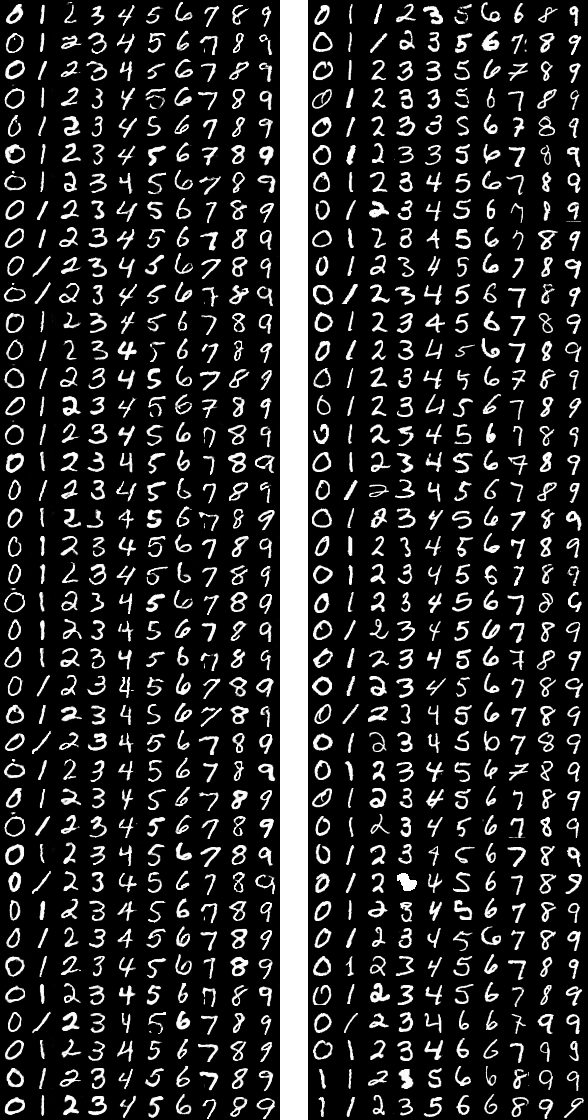 0 1 2 3 4 5 6 7 8 9 0 1 1 2 3 5 6 6 8 9
0 1 2 3 4 5 6 7 8 9 0 1 1 2 3 5 6 7 8 9
0 1 2 3 4 5 6 7 8 9 0 1 2 3 3 5 6 7 8 9
0 1 2 3 4 5 6 7 8 9 0 1 2 3 3 5 6 7 8 9
0 1 2 3 4 5 6 7 8 9 0 1 2 3 3 5 6 7 8 9
0 1 2 3 4 5 6 7 8 9 0 1 2 3 3 5 6 7 8 9
0 1 2 3 4 5 6 7 8 9 0 1 2 3 4 5 6 7 8 9
0 1 2 3 4 5 6 7 8 9 0 1 2 3 4 5 6 7 8 9
0 1 2 3 4 5 6 7 8 9 0 1 2 3 4 5 6 7 8 9
0 1 2 3 4 5 6 7 8 9 0 1 2 3 4 5 6 7 8 9
0 1 2 3 4 5 6 7 8 9 0 1 2 3 4 5 6 7 8 9
0 1 2 3 4 5 6 7 8 9 0 1 2 3 4 5 6 7 8 9
0 1 2 3 4 5 6 7 8 9 0 1 2 3 4 5 6 7 8 9
0 1 2 3 4 5 6 7 8 9 0 1 2 3 4 5 6 7 8 9
0 1 2 3 4 5 6 7 8 9 0 1 2 3 4 5 6 7 8 9
0 1 2 3 4 5 6 7 8 9 0 1 2 5 4 5 6 7 8 9
0 1 2 3 4 5 6 7 8 9 0 1 2 3 4 5 6 7 8 9
0 1 2 3 4 5 6 7 8 9 0 1 2 3 4 5 6 7 8 9
0 1 2 3 4 5 6 7 8 9 0 1 2 3 4 5 6 7 8 9
0 1 2 3 4 5 6 7 8 9 0 1 2 3 4 5 6 7 8 9
0 1 2 3 4 5 6 7 8 9 0 1 2 3 4 5 6 7 8 9
0 1 2 3 4 5 6 7 8 9 0 1 2 3 4 5 6 7 8 9
0 1 2 3 4 5 6 7 8 9 0 1 2 3 4 5 6 7 8 9
0 1 2 3 4 5 6 7 8 9 0 1 2 3 4 5 6 7 8 9
0 1 2 3 4 5 6 7 8 9 0 1 2 3 4 5 6 7 8 9
0 1 2 3 4 5 6 7 8 9 0 1 2 3 4 5 6 7 8 9
0 1 2 3 4 5 6 7 8 9 0 1 2 3 4 5 6 7 8 9
0 1 2 3 4 5 6 7 8 9 0 1 2 3 4 5 6 7 8 9
0 1 2 3 4 5 6 7 8 9 0 1 2 3 4 5 6 7 8 9
0 1 2 3 4 5 6 7 8 9 0 1 2 3 4 5 6 7 8 9
0 1 2 3 4 5 6 7 8 9 0 1 2 3 4 5 6 7 8 9
0 1 2 3 4 5 6 7 8 9 0 1 2 4 5 6 7 8 9
0 1 2 3 4 5 6 7 8 9 0 1 2 3 4 5 6 7 8 9
0 1 2 3 4 5 6 7 8 9 0 1 2 3 4 5 6 7 8 9
0 1 2 3 4 5 6 7 8 9 0 1 2 3 4 5 6 7 8 9
0 1 2 3 4 5 6 7 8 9 0 1 2 3 4 5 6 7 8 9
0 1 2 3 4 5 6 7 8 9 0 1 2 3 4 6 6 7 9 9
0 1 2 3 4 5 6 7 8 9 0 1 2 3 4 6 6 7 9 9
0 1 2 3 4 5 6 7 8 9 1 1 2 3 5 6 6 8 9 9
0 1 2 3 4 5 6 7 8 9 1 1 2 3 5 5 6 8 9 8